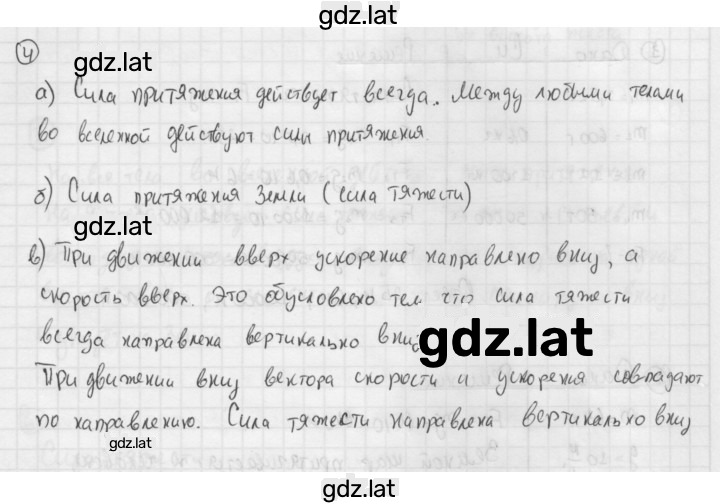 gdz.lat
4
gdz.lat
а) Сила притяжения действует всегда. Между любыми телами
во вселенной действуют силы притяжения.
б) Сила притяжения Земли (сила тяжести)
gdz.lat
в) При движении вверх ускорение направлено вниз, а
скорость вверх. Это обусловлено тем что сила тяжести
всегда направлена вертикально вниз
gdz.lat
При движении вниз вектора скорости и ускорения совпадают
по направлению. Сила тяжести направлена вертикально вниз
gdz.lat
gdz.lat